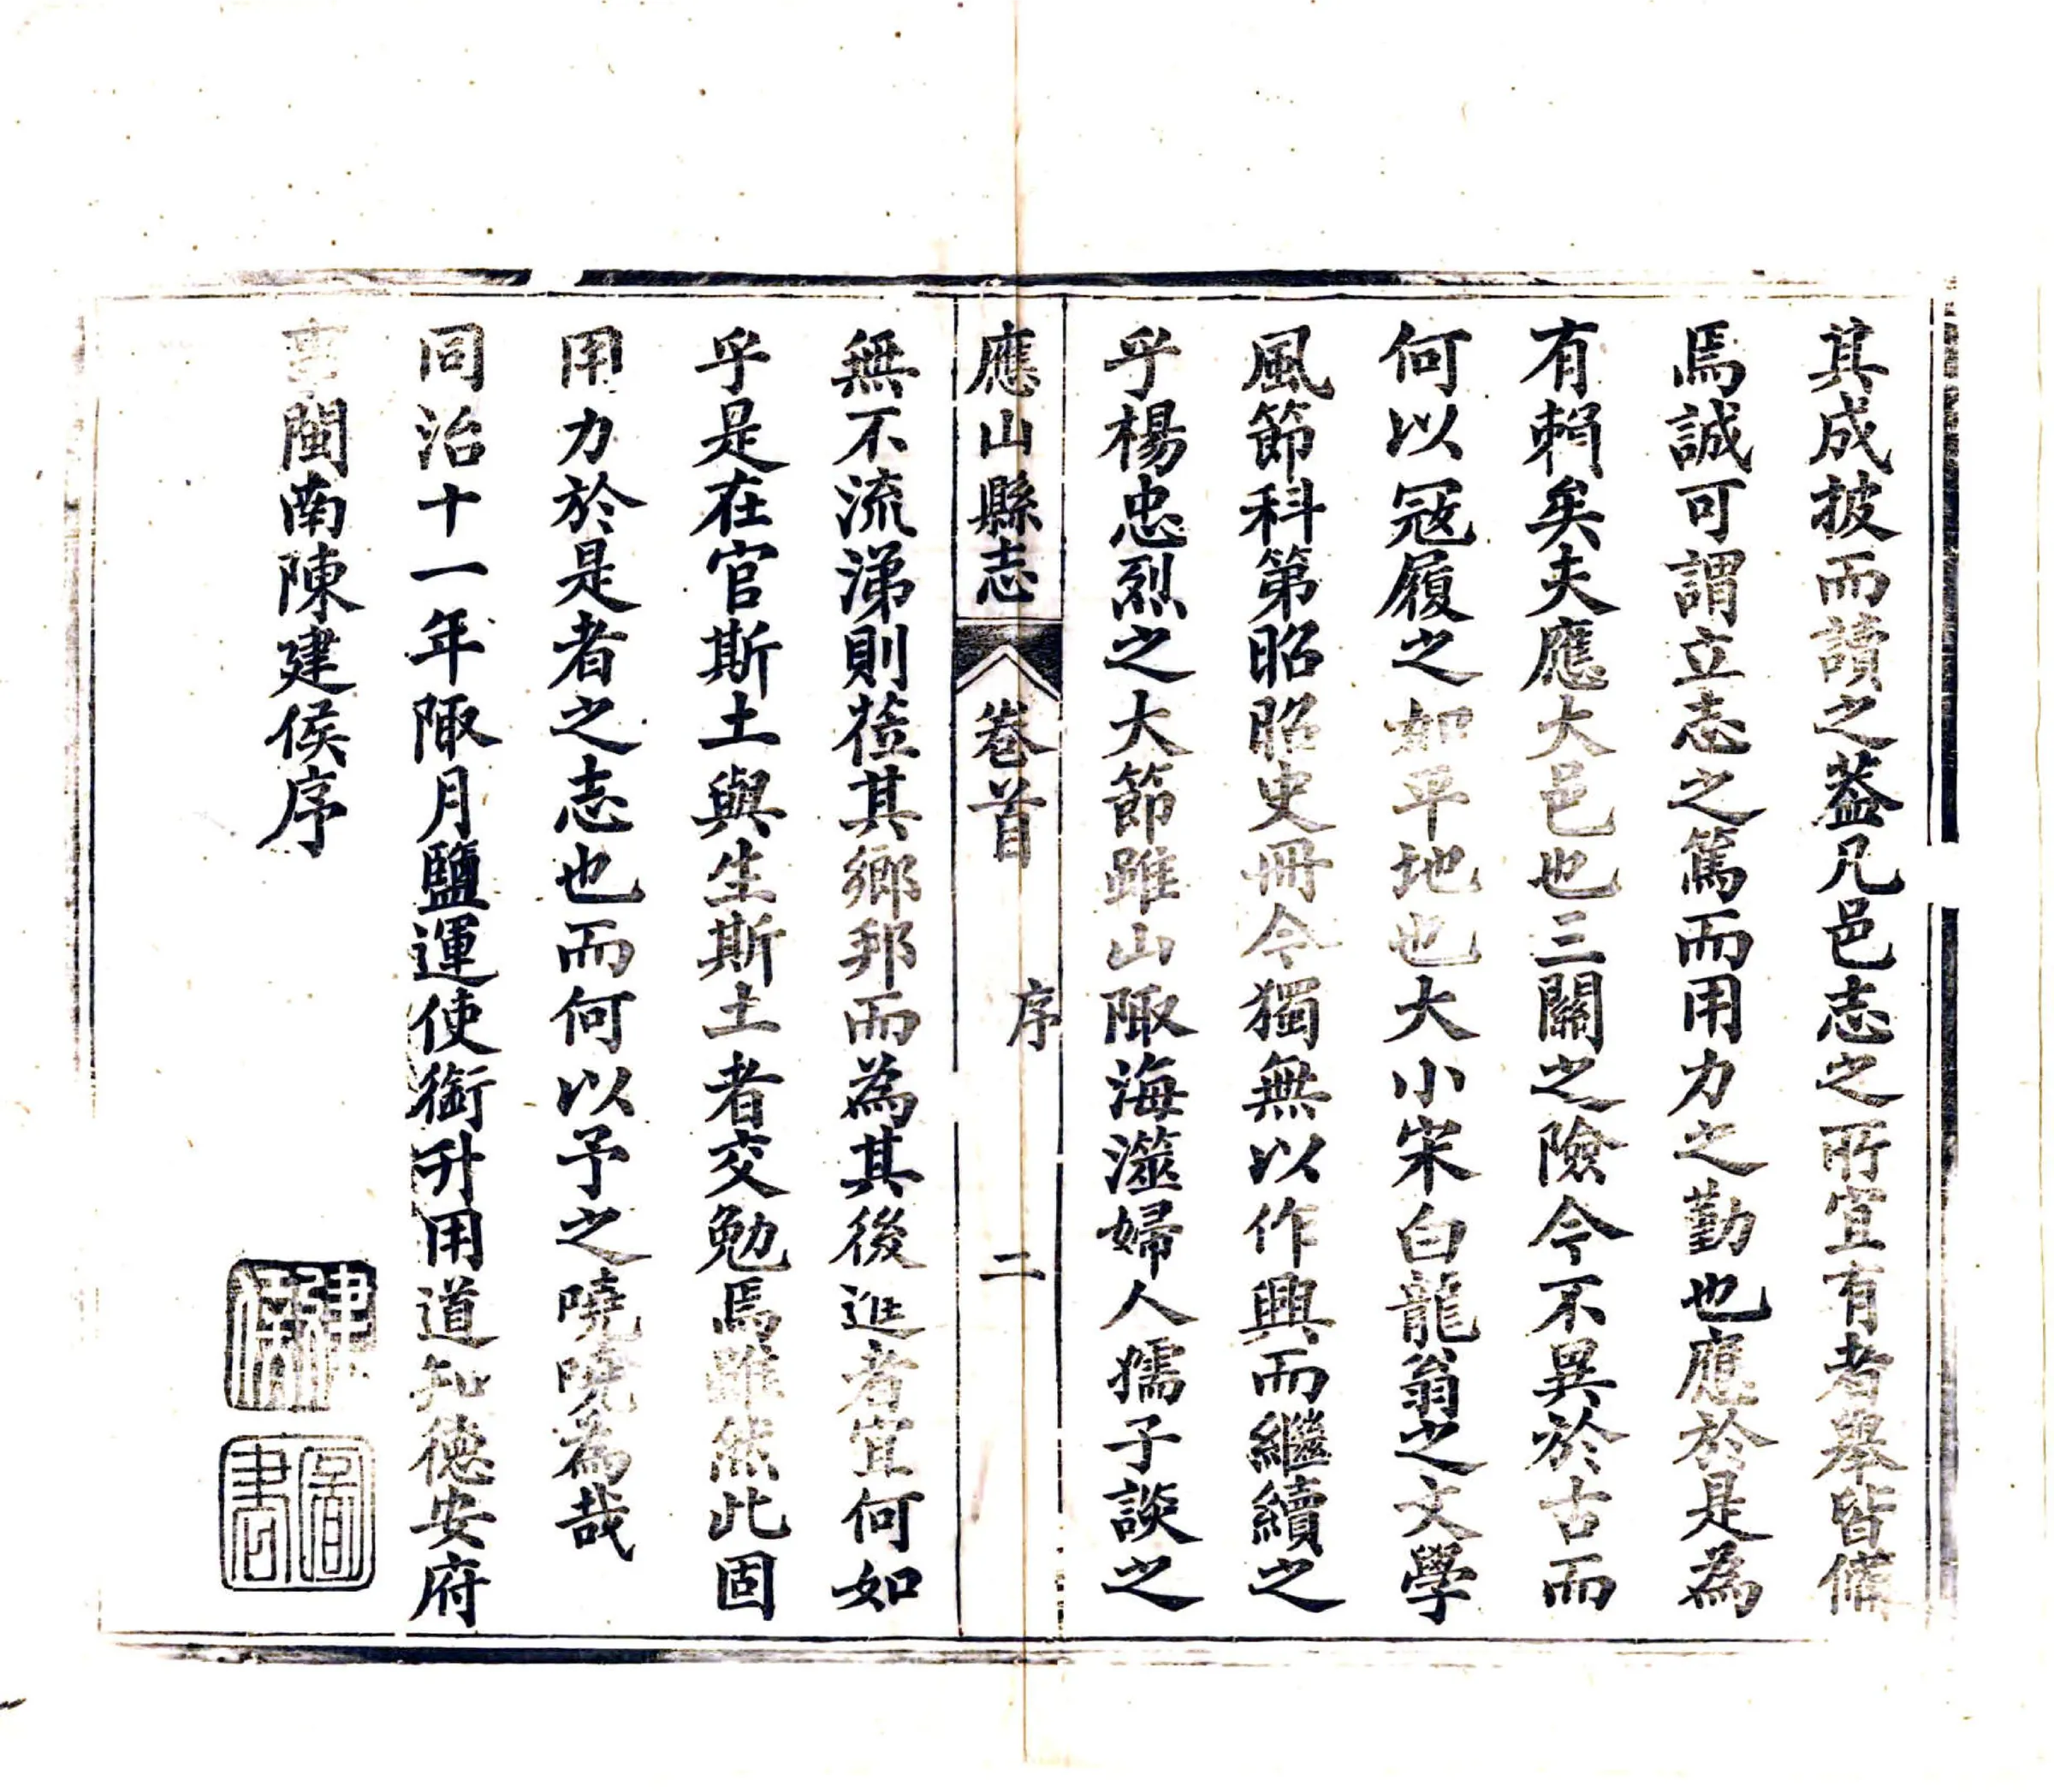 其成披而讀之葢凡邑志之所宜有者舉皆俻
焉誠可謂立志之篤而用力之勤也應於是為
有賴矣夫應大邑也三關之險今不異於古而
何以冦履之如平地也大小宋白龍翁之文學
風節科第昭昭史冊今獨無以作興而繼續之
乎楊忠烈之大節雖山陬海澨婦人孺子談之
應山縣志
卷首
序
二
無不流涕則蒞其鄉邦而為其後進者宜何如
乎是在官斯土與生斯土者交勉焉雖然此固
用力於是者之志也而何以予之嘵嘵為哉
同治十一年陬月鹽運使銜升用道知德安府
事閩南陳建侯序
建侯
圖書